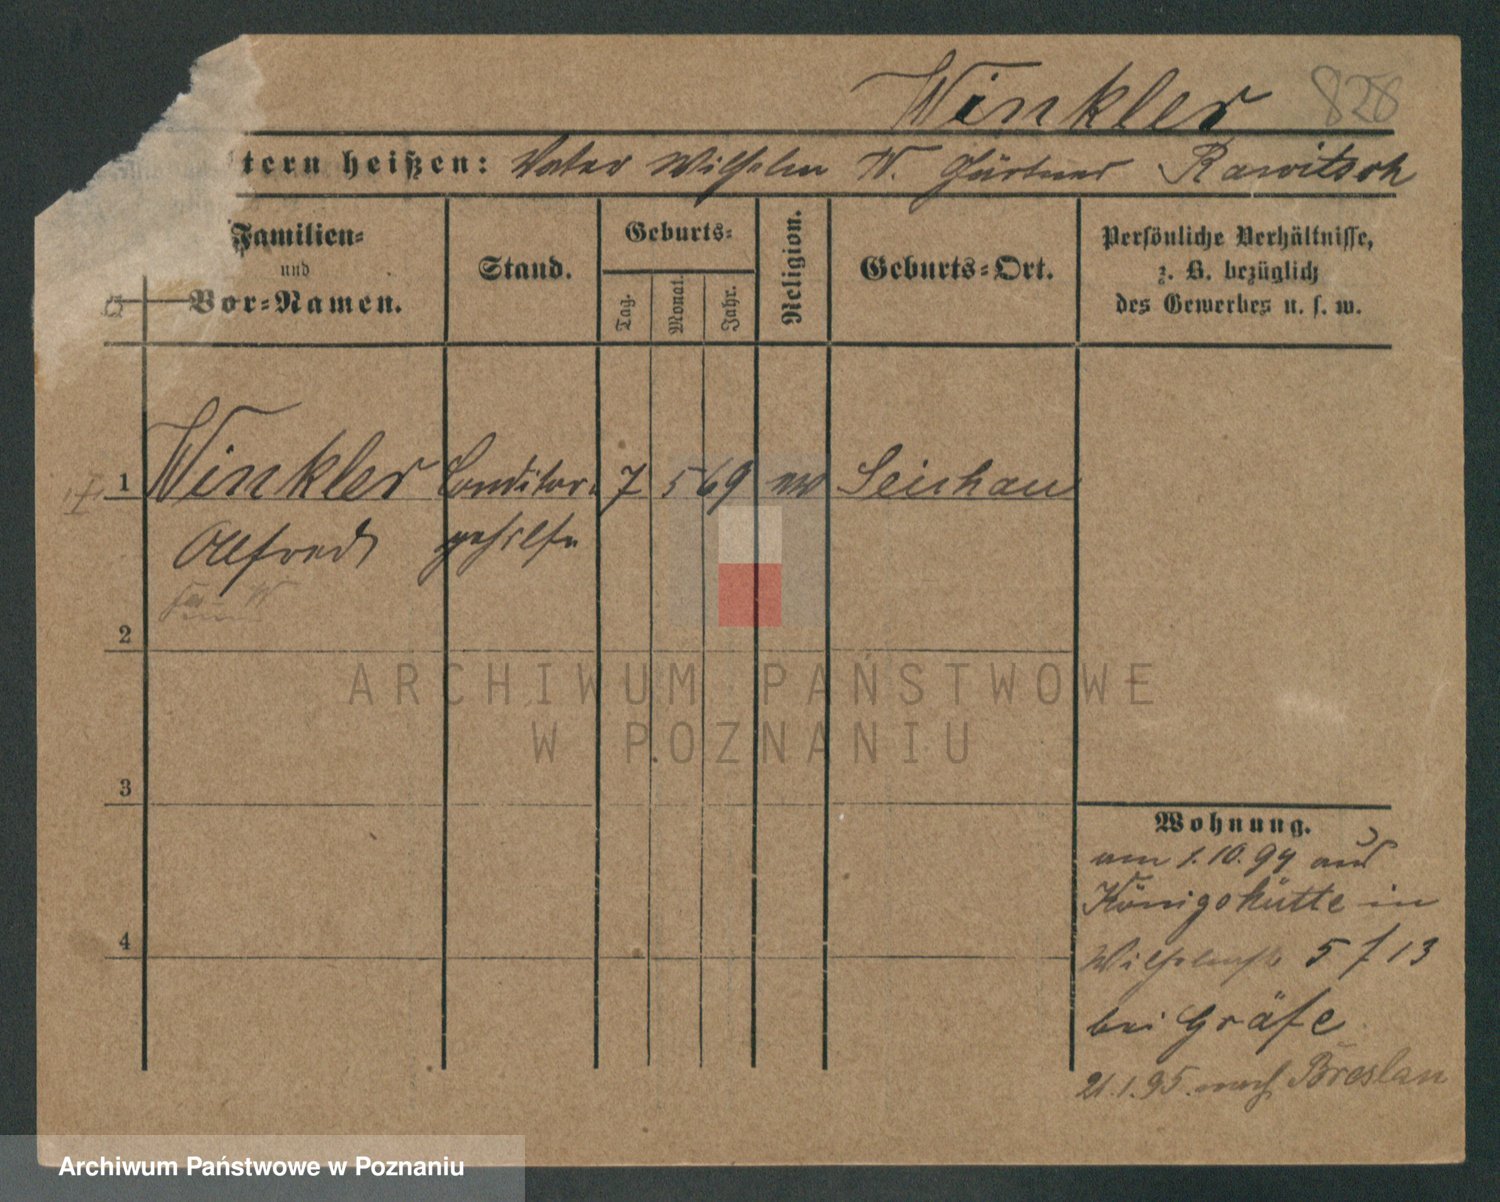 Winkler 828
ltern heißen: Vater Wilhelm W. Gärtner Rawitsch
Familien-
und
Vor-Namen.
Stand.
Geburts-
Tag.
Monat.
Jahr.
Religion.
Geburts-Ort.
Persönliche Verhältnisse,
z. B. bezüglich
des Gewerbes u. s. w.
1 Winkler Conditor- 7 5 69 ev Seichau
Alfred gehilfe
2
3
4
Wohnung.
am 1.10.94 aus
Königshütte in
Wilhelmstr 5 / 13
bei Gräfe
21.1.95. nach Breslau
ARCHIWUM PAŃSTWOWE
W POZNANIU
Archiwum Państwowe w Poznaniu